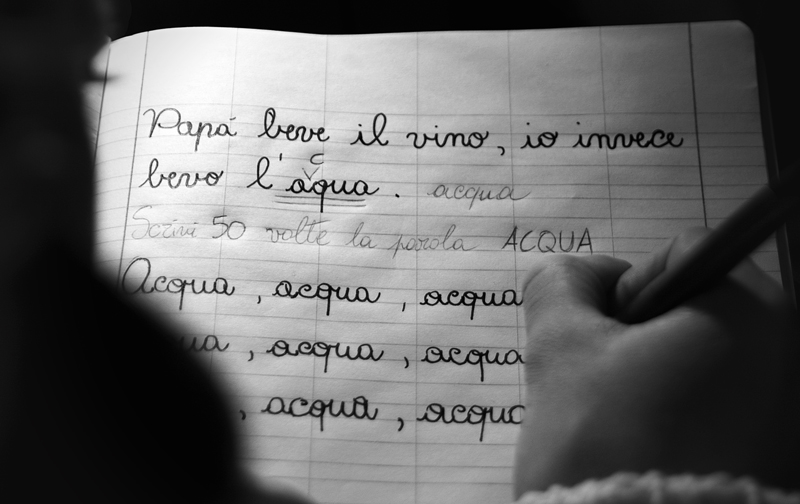 Papá beve il vino, io invece
c
bevo l'aqua. acqua
Scrivi 50 volte la parola ACQUA
Acqua, acqua, acqua
, acqua, acqua
, acqua, acqu